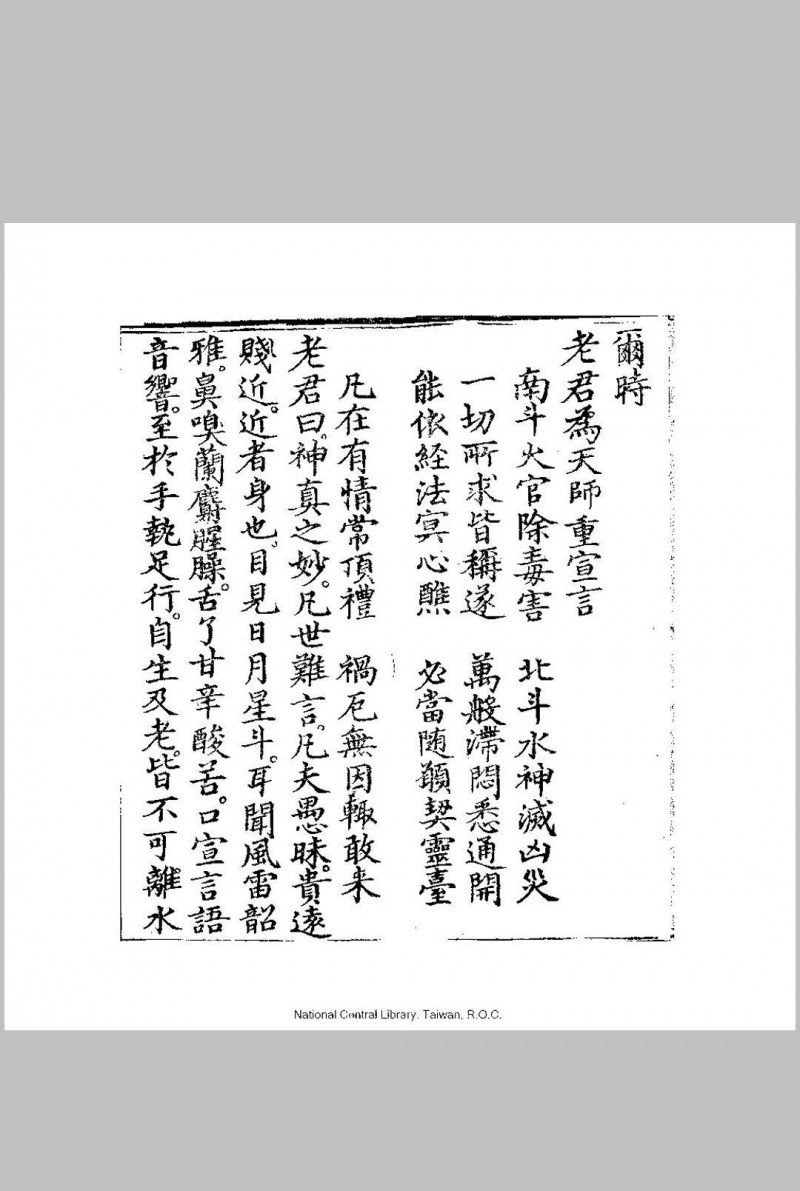 爾時
老君為天師重宣言
南斗火官除毒害　北斗水神滅凶災
一切所求皆稱遂　萬般滯悶悉通開
能依経法冥心醮　必當随願契靈臺
凡在有情常頂禮　禍厄無因輙敢来
老君曰。神真之妙。凡世難言。凡夫愚昧。貴遠
賤近。近者身也。目見日月星斗。耳聞風雷韶
雅。鼻嗅蘭麝腥臊。舌了甘辛酸苦。口宣言語
音響。至於手執足行。自生及老。皆不可離水
National Central Library, Taiwan, R.O.C.